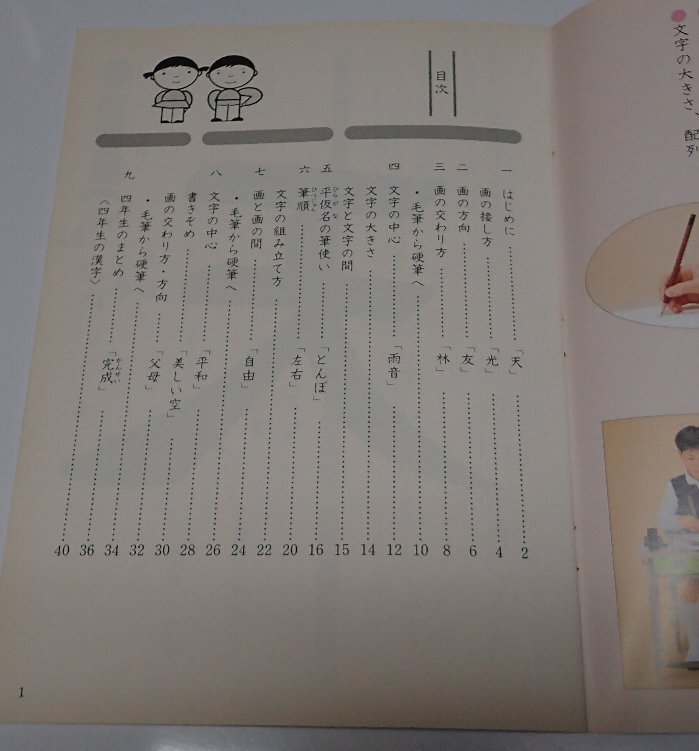 ●文字の大きさ、配列
目次
一 はじめに……「天」……2
画の接し方……「光」……4
二 画の方向……「友」……6
三 画の交わり方……「林」……8
・毛筆から硬筆へ……10
四 文字の中心……「雨音」……12
文字の大きさ……14
文字と文字の間……15
五 平仮名の筆使い……「とんぼ」……16
六 筆順……「左右」……20
文字の組み立て方……22
七 画と画の間……「自由」……24
・毛筆から硬筆へ……26
八 文字の中心……「平和」……28
書きぞめ……「美しい空」……30
画の交わり方・方向……「父母」……32
・毛筆から硬筆へ……34
九 四年生のまとめ……「完成」……36
〈四年生の漢字〉……40
1